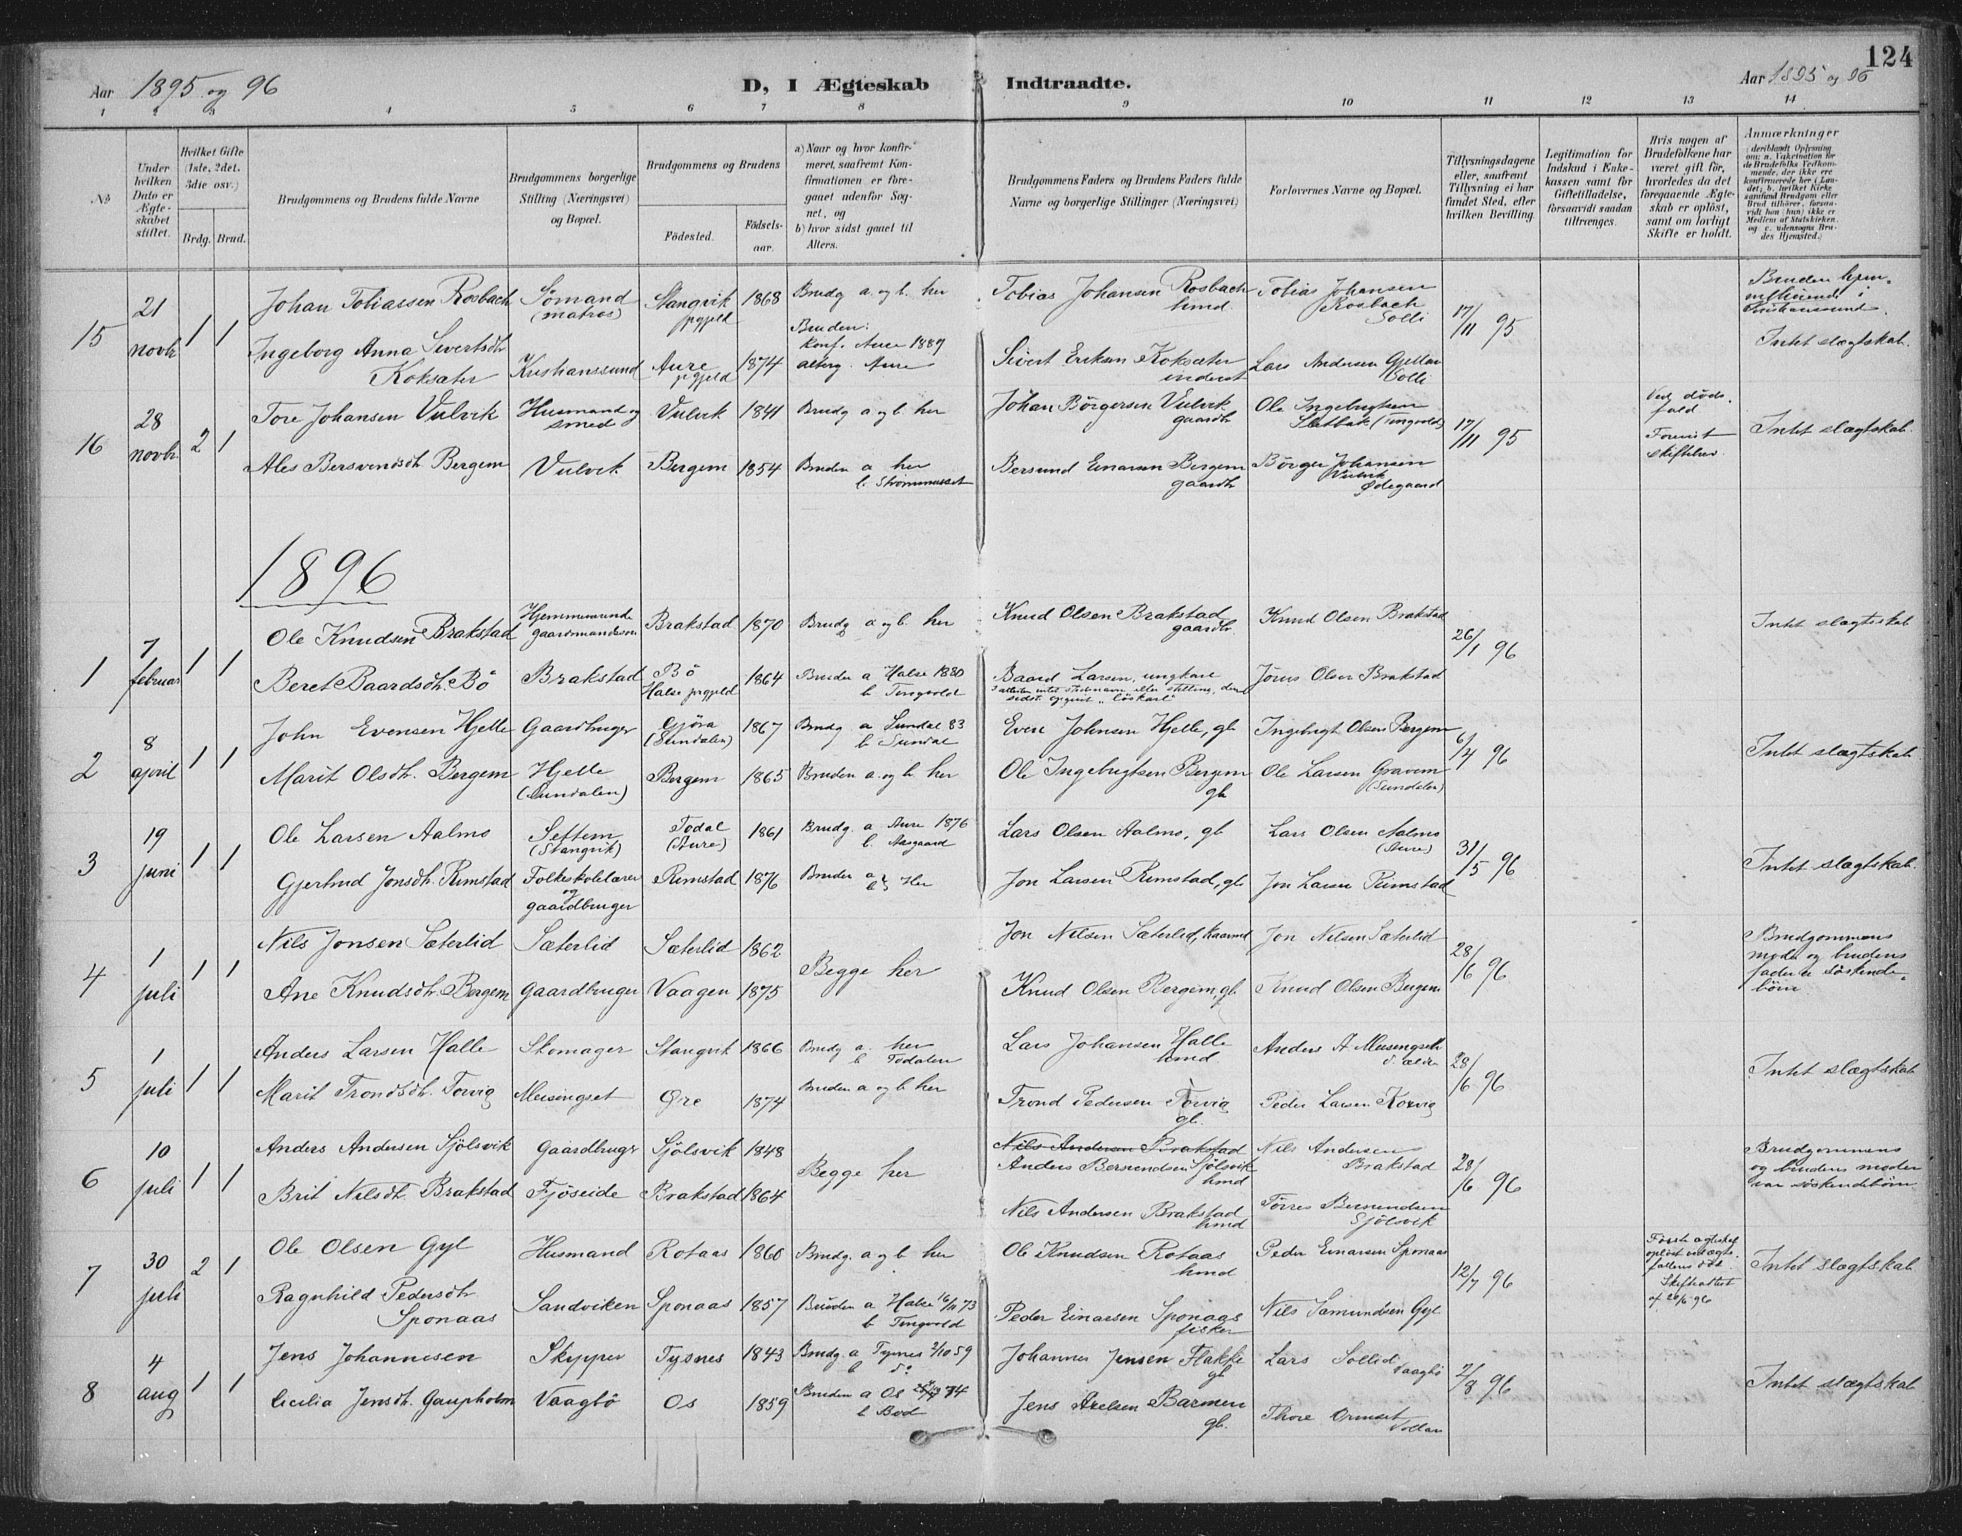 124
Aar 1895 og 96
D, I Ægteskab Indtraadte.
Aar 1895 og 96
1 2 3 4 5 6 7 8 9 10 11 12 13 14
№
Under hvilken Dato er Ægteskabet stiftet.
Hvilket Gifte (1ste, 2det, 3die osv.)
Brdg. Brud.
Brudgommens og Brudens fulde Navne
Brudgommens borgerlige Stilling (Næringsvei) og Bopæl.
Brudgommens og Brudens
Fødested.
Fødselsaar.
a) Naar og hvor konfirmeret, saafremt Konfirmationen er foregaaet udenfor Sognet, og
b) hvor sidst gaaet til Alters.
Brudgommens Faders og Brudens Faders fulde Navne og borgerlige Stillinger (Næringsvei)
Forlovernes Navne og Bopæl.
Tillysningsdagene eller, saafremt Tillysning ei har fundet Sted, efter hvilken Bevilling.
Legitimation for Indskud i Enkekassen samt for Giftetilladelse, forsaavidt saadan tiltrænges.
Hvis nogen af Brudefolkene har været gift før, hvorledes da det foregaaende Ægteskab er opløst, samt om lovligt Skifte er holdt.
Anmærkninger
(deriblandt Oplysning om: a. Vakcination for de Brudefolks Vedkommende, der ikke ere konfirmerede her i Landet; b. hvilket Kirkesamfund Brudgom eller Brud tilhører, forsaavidt han (hun) ikke er Medlem af Statskirken, og c. udensogns Brudes Hjemsted.)
15 21 novbr 1 1
Johan Tobiassen Rosbach Sömand (matros) Stangvik prgjeld 1868 Brudg a. og b. her Tobias Johansen Rosbach husmd. Tobias Johansen Rosbach Solli 17/11 95
Ingeborg Anna Sivertsdtr Koksæter Kristianssund Aure prgjeld 1874 Bruden: konf. Aure 1889 alterg. Aure Sivert Eriksen Koksæter inderst Lars Andersen Gjeldnes Solli
Intet slægtskab.
16 28 novbr. 2 1
Tore Johansen Vulvik Husmand og smed Vulvik 1841 Brudg a og b. her Johan Börgersen Vulvik gaardbr Ole Ingebrigtsen Sletbak (Tingvold) 17/11 95 Ved dödsfald
Ales Bersvendsdtr. Bergem Vulvik Bergem 1854 Bruden a her b. Strömmesset Bersvend Einarsen Bergem gaardbr Börger Johansen Vulvik Ødegaard
Intet slægtskab.
1896
1 7 februar 1 1
Ole Knudsen Brakstad Hjemmeværende gaardmandssøn Brakstad 1870 Brudg a og b. her Knud Olsen Brakstad gaardbr. Knud Olsen Brakstad 26/1 96 Intet slægtskab
Beret Baardsdtr. Bö Brakstad Bö Halse prgjeld 1864 Bruden a Halse 1880 b Tingvold Baard Larsen, ungkarl Jörus Olsen Brakstad
2 8 april 1 1
John Evensen Hjelle Gaardbruger Gjöra (Sundalen) 1867 Brudg a Sundal 83 b Sundal Even Johnsen Hjelle, gb Ingebrigt Olsen Bergem 6/4 96 Intet slægtskab.
Marit Olsdtr. Bergem Hjelle (Sundalen) Bergem 1865 Bruden a. og b. her Ole Ingebrigtsen Bergem gb Ole Larsen Gravem (Sundalen)
3 19 juni 1 1
Ole Larsen Aalmo Settem (Stangvik) Todal (Aure) 1861 Brudg. a. Aure 1876 b. Aasgaard Lars Olsen Aalmo, gb Lars Olsen Aalmo (Aure) 31/5 96 Intet slægtskab.
Gjertrud Jonsdtr. Rimstad Folkeskolelærer og gaardbruger Rimstad 1876 Bruden a b Her Jon Larsen Rimstad, gb Jon Larsen Rimstad
4 1 juli 1 1
Nils Jonsen Sæterlid Sæterlid Sæterlid 1862 Begge her Jon Nilsen Sæterlid, kaarmd Jon Nilsen Sæterlid 28/6 96 Brudgommens moder og brudens fader er söskendebörn.
Ane Knudsdtr. Bergem Gaardbruger Vaagen 1875 Knud Olsen Bergem, gb. Knud Olsen Bergem
5 1 juli 1 1
Anders Larsen Halle Skomager Stangvik 1866 Brudg a. her b Todalen Lars Johansen Halle husmd Anders A Meisingseth d. ældre 28/6 96 Intet slægtskab
Marit Trondsdtr. Torvig Meisingset Øre 1874 Bruden a og b her Trond Pedersen Torvig gb. Peder Larsen Korvig
6 10 juli 1 1
Anders Andersen Sjölsvik Gaardbruger Sjölsvik 1848 Begge her Nils Andersen Brakstad Anders Bersvendsen Sjölsvik husmd Nils Andersen Brakstad 28/6 96 Brudgommens og brudens moder var söskendebörn
Brit Nilsdtr. Brakstad Fjöseide Brakstad 1864 Nils Andersen Brakstad husmd Törres Bersvendsen Sjölsvik
7 30 juli 2 1
Ole Olsen Gyl Husmand Rotaas 1860 Brudg. a og b her Ole Knudsen Rotaas husmd Peder Einarsen Sponaas 12/7 96 Intet slægtskab.
Ragnhild Pedersdtr Sponaas Sandviken Sponaas 1857 Bruden a Halse 16/11 73 b Tingvold Peder Einarsen Sponaas fisker Nils Samundsen Gyl
8 4 aug 1 1
Jens Johannesen Skypper Tysnes 1843 Brudg. a Tysnes 2/10 59 b do Johannes Jensen Flakke gb Lars Sollid Vaagbö 2/8 96 Intet slægtskab
Cecilia Jensdtr. Gaupholm Vaagbö Os 1859 Bruden a Os 74 b Bod Jens Axelsen Barmen gb. Thore Ormset Vollan